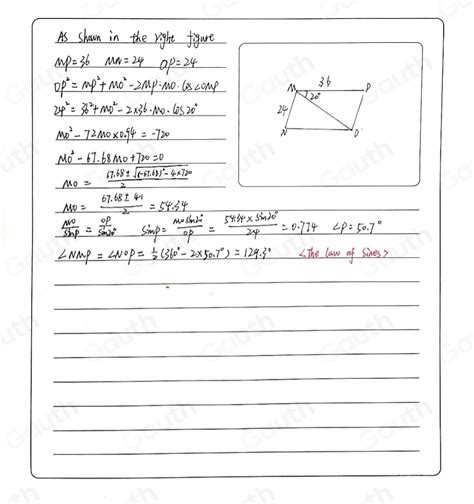 As shown in the right figure
MP=36 MN=24 OP=24
OP²=MP²+MO²-2MP·MO·Cos∠OMP
24²=36²+MO²-2×36·MO·Cos20°
MO²-72MO×0.94=-720
MO²-67.68MO+720=0
MO=(67.68±√((-67.68)²-4×720))/2
MO=(67.68±41)/2=54.34
MO/SinP=OP/Sin20° SinP=MOSin20°/OP=54.34×Sin20°/24=0.774 ∠P=50.7°
∠NMP=∠NOP=1/2(360°-2×50.7°)=129.3° <The law of Sines>
M 36 P
20°
24
N O
Gauth